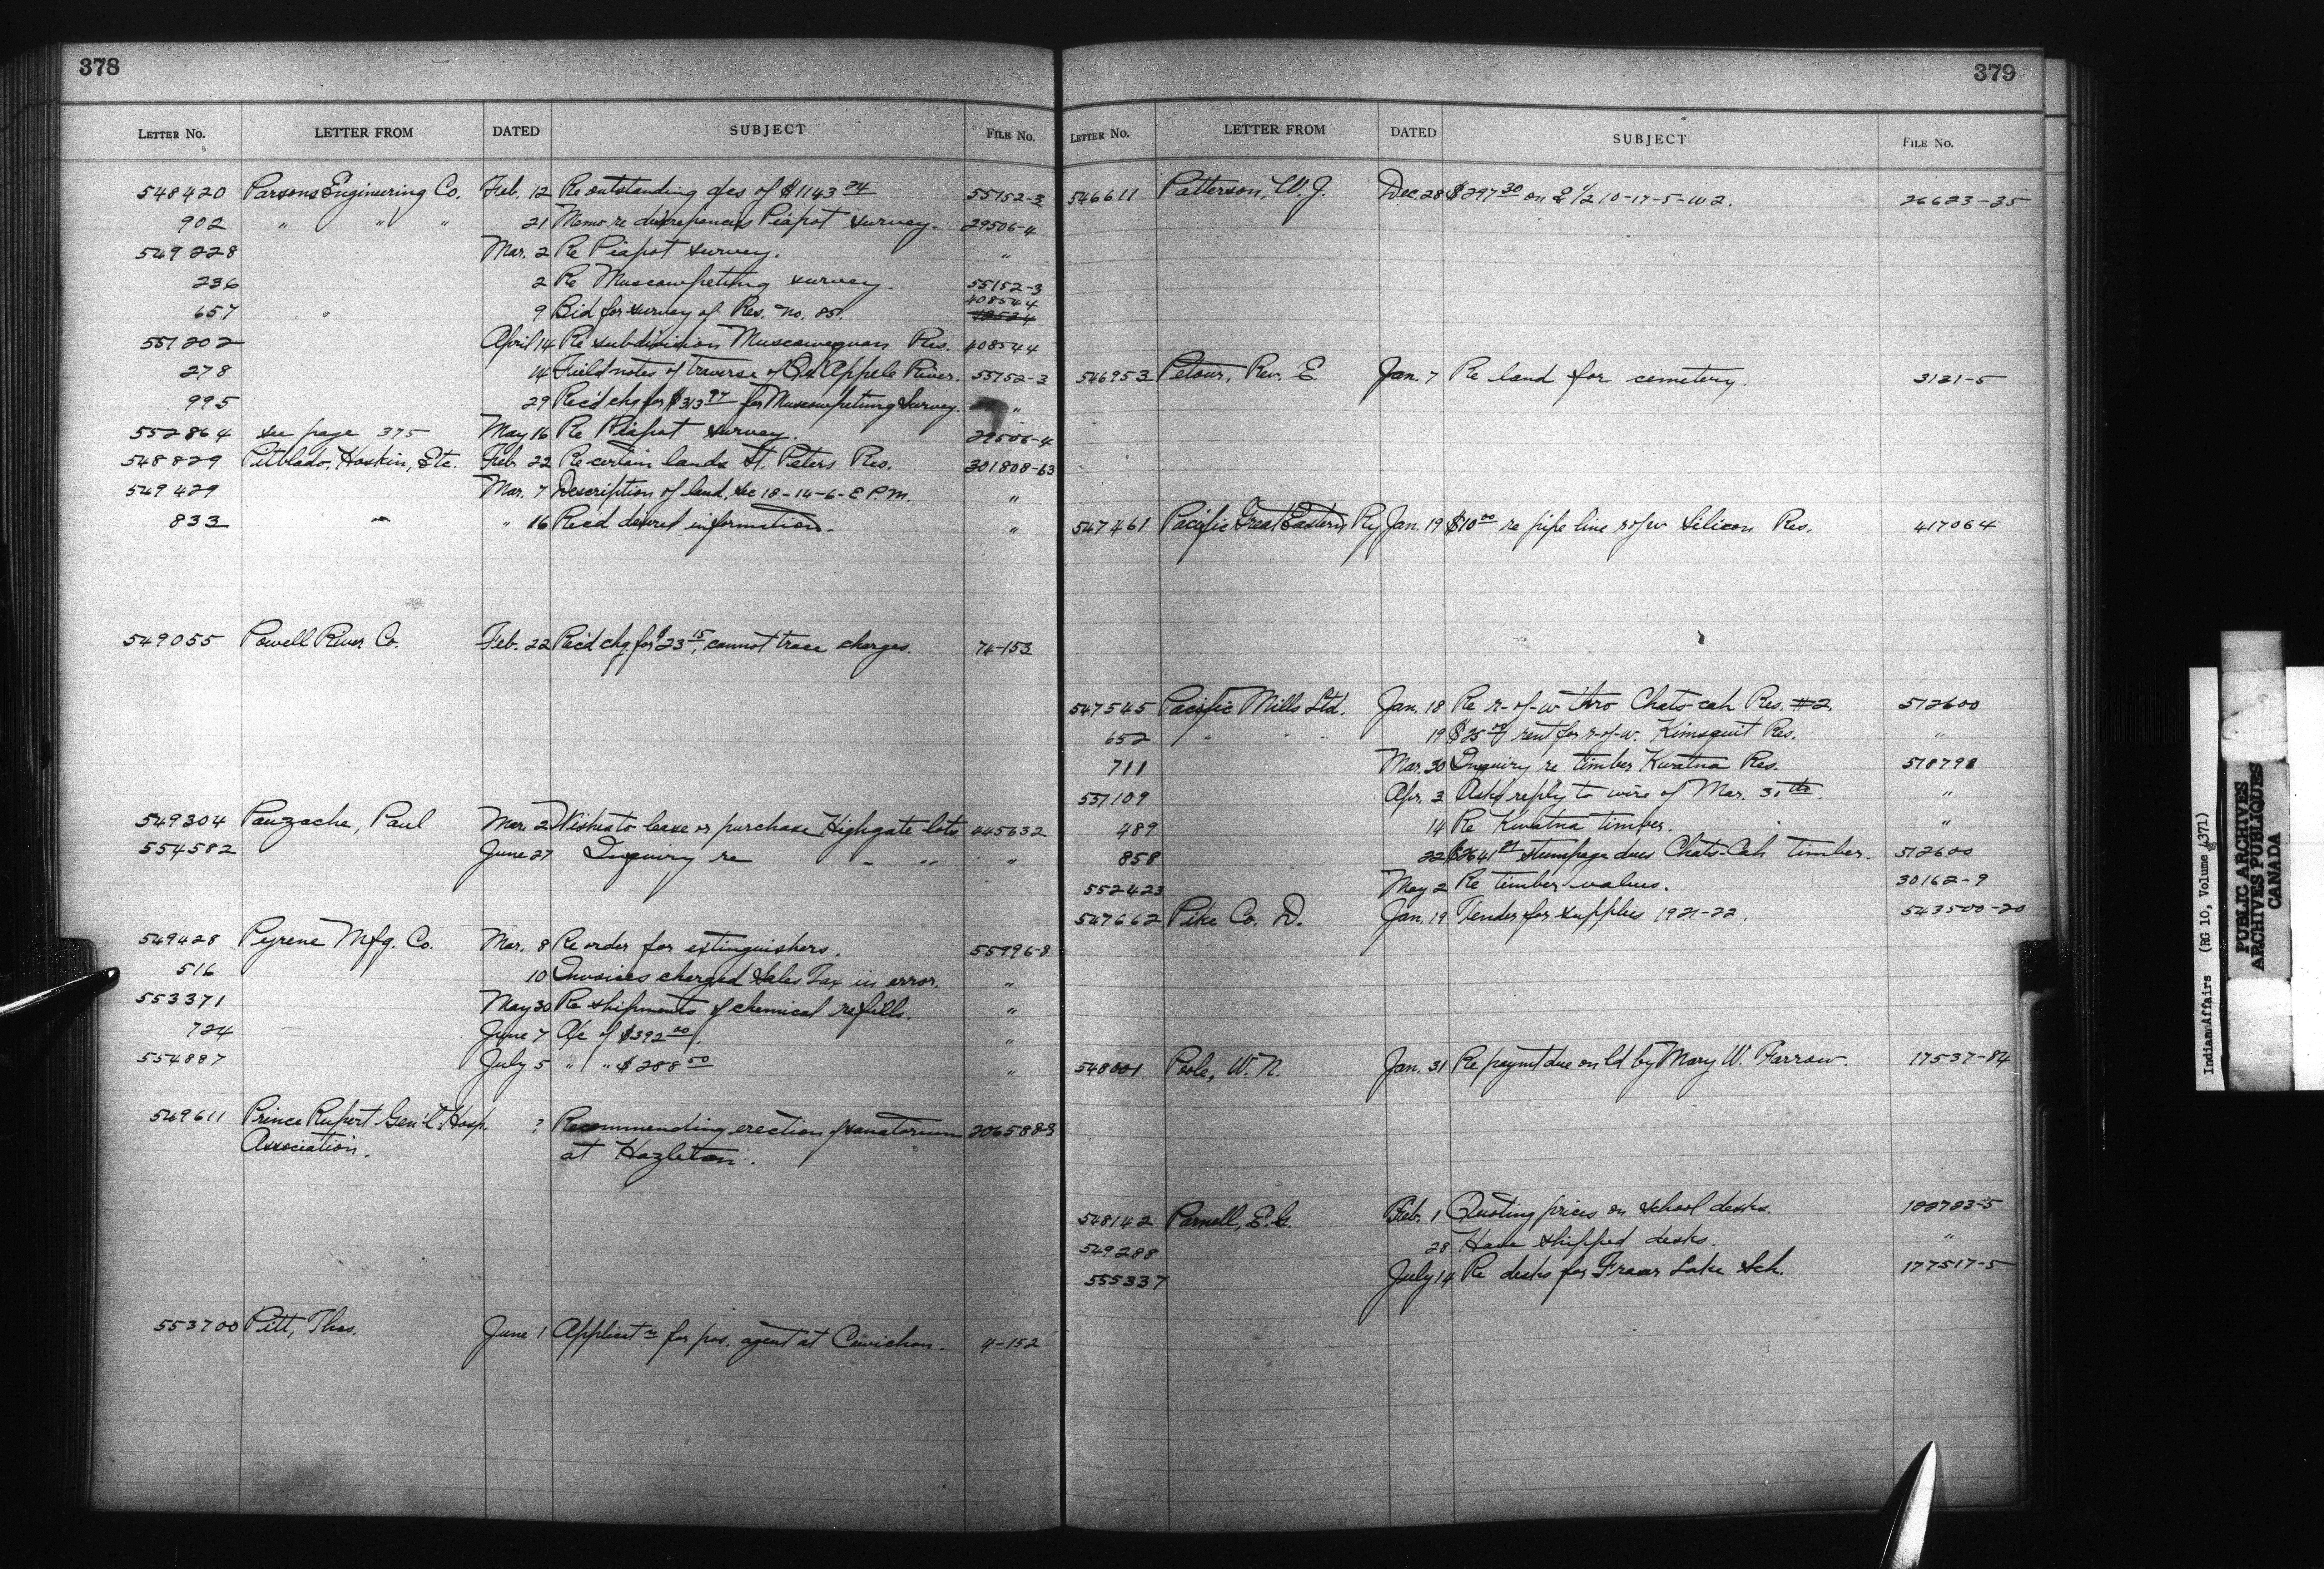 378
LETTER NO. LETTER FROM DATED SUBJECT FILE No.
548420 Parsons Engineering Co. Feb. 12 Re outstanding a/cs of $1143 24 55152-3
902 " " " 21 Memo re discrepancies Piapot survey. 29506-4
549228 Mar. 2 Re Piapot survey. "
236 2 Re Muscowpetung survey. 55152-3
657 " 9 Bid for survey of Res. no. 85. 408544
551202 April 14 Re subdivision Muscowequan Res. 408544
278 14 Field notes of traverse of Qu'Appele River. 55152-3
995 29 Rec'd chq for $313 97 for Muscowpetung Survey. "
552864 see page 375 May 16 Re Piapot survey. 29506-4
548829 Pitblado, Hoskin, Etc. Feb. 22 Re certain lands St. Peters Res. 301808-63
549429 Mar. 7 Description of land, Sec 18-14-6-E P.M. "
833 " " 16 Rec'd desired information. "
549055 Powell River Co. Feb. 22 Rec'd chq. for $23 15, cannot trace charges. 74-153
549304 Pauzache, Paul Mar. 2 Wishes to lease or purchase Highgate lots 445632
554582 June 27 Inquiry re " " "
549428 Pyrene Mfg. Co. Mar. 8 Re order for extinguishers. 55996-8
516 10 Invoices charged Sales Tax in error. "
553371 May 30 Re shipments of chemical refills. "
724 June 7 A/c of $392 00. "
554887 July 5 " " $288 50 "
549611 Prince Rupert Gen'l Hosp. ? Recommending erection of sanatorium 206588-3
Association. at Hazleton.
553700 Pitt, Thos. June 1 Applicat'n for pos. agent at Cowichan. 4-152
379
LETTER NO. LETTER FROM DATED SUBJECT FILE NO.
546611 Patterson, W. J. Dec. 28 $297 30 on 1/2 10-17-5-W2. 26623-35
546953 Petour, Rev. E. Jan. 7 Re land for cemetery. 3131-5
547461 Pacific Great Eastern Ry Jan. 19 $10 00 re pipe line r of w Silicon Res. 417064
547545 Pacific Mills Ltd. Jan. 18 Re r-of-w thro Chats-cah Res. #2. 512600
652 " " " 19 $25 00 rent for r-of-w. Kimsquit Res. "
711 Mar. 30 Inquiry re timber Kwatna Res. 518798
551109 Apr. 3 Asks reply to wire of Mar. 31 "
489 14 Re Kwatna timber. "
858 22 $2641 21 stumpage dues Chats-Cah timber. 512600
552423 May 2 Re timber values. 30162-9
547662 Pike Co. D. Jan. 19 Tender for supplies 1921-22. 543500-20
548001 Poole, W. N. Jan. 31 Re paymt due on ld by Mary W. Farrow. 17537-84
548142 Parnell, E. G. Feb. 1 Quoting prices on school desks. 188783-5
549288 28 Have shipped desks. "
555337 July 14 Re desks for Fraser Lake Sch. 177517-5
Indian Affairs (RG 10, Volume 4371)
PUBLIC ARCHIVES
ARCHIVES PUBLIQUES
CANADA